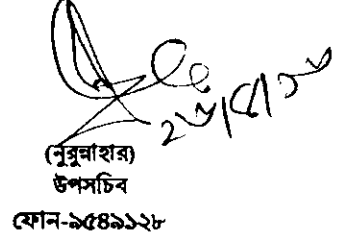 (নুরুন্নাহার)
উপসচিব
ফোন-৯৫৪৯১২৮